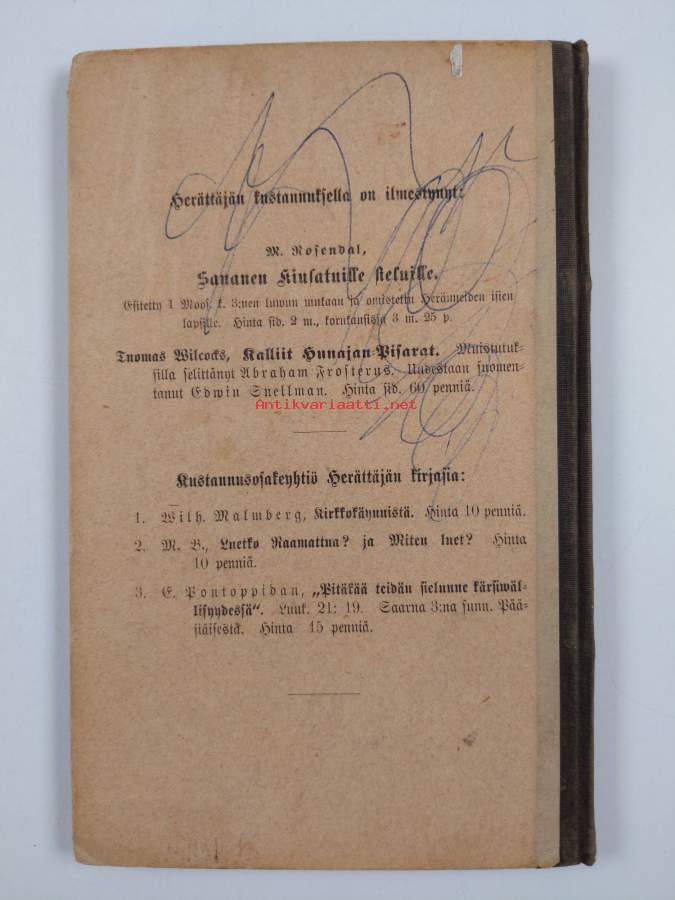 Herättäjän kustannuksella on ilmestynyt:
M. Rosendal,
Sananen Kiusatuille sieluille.
Esitetty 1 Moos. k. 3:nen luwun mukaan ja omistettu Heränneiden isien
lapsille. Hinta sid. 2 m., korukansissa 3 m. 25 p.
Tuomas Wilcocks, Kalliit Hunajan-Pisarat. Muistutuk-
silla selittänyt Abraham Frosterus. Uudestaan suomen-
tanut Edwin Snellman. Hinta sid. 60 penniä.
Antikvariaatti.net
Kustannusosakeyhtiö Herättäjän kirjasia:
1. Wilh. Malmberg, Kirkkokäynnistä. Hinta 10 penniä.
2. M. B., Luetko Raamattua? ja Miten luet? Hinta
10 penniä.
3. E. Pontoppidan, „Pitäkää teidän sielunne kärsiwäl-
lisyydessä“. Luuk. 21: 19. Saarna 3:na sunn. Pää-
siäisestä. Hinta 15 penniä.